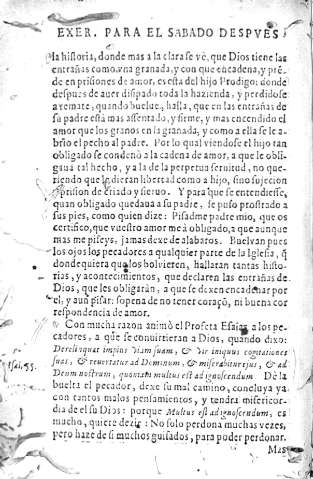 EXER. PARA EL SABADO DESPVES
la historia, donde mas a la clara se vè, que Dios tiene las
entrañas como vna granada, y con que encadena, y prẽ-
de en prisiones de amor, es esta del hijo Prodigo: donde
despues de auer disipado toda la hazienda, y perdidose
a remate, quando buelue, halla, que en las entrañas de
su padre està mas assentado, y firme, y mas encendido el
amor que los granos en la granada, y como a ella se le a-
briò el pecho al padre. Por lo qual viendose el hijo tan
obligado se condenò a la cadena de amor, a que le obli-
gaua tal hecho, y a la de la perpetua seruitud, no que-
riendo que le dieran libertad como a hijo, sino sujecion
y prision de criado y sieruo. Y para que se entendiesse,
quan obligado quedaua a su padre, se puso prostrado a
sus pies, como quien dize: Pisadme padre mio, que os
certifico, que vuestro amor me à obligado, a que aunque
mas me piseys, jamas dexe de alabaros. Bueluan pues
los ojos los pecadores a qualquier parte de la Iglesia, q̃
donde quiera que los boluieren, hallaran tantas histo-
rias, y acontecimientos, que declaren las entrañas de
Dios, que les obligaràn, a que se dexen encadenar por
el, y aun pisar: sopena de no tener coraçõ, ni buena cor
respondencia de amor.
Con mucha razon animò el Profeta Esaias a los pe-
cadores, a que se conuirtieran a Dios, quando dixo:
Derelinquat impius viam suam, & vir iniquus cogitationes
suas, & reuertatur ad Dominum, & miserebitur eius, & ad
Isai. 55.
Deum nostrum, quoniam multus est ad ignoscendum. Dè la
buelta el pecador, dexe su mal camino, concluya ya
con tantos malos pensamientos, y tendra misericor-
dia de el su Dios: porque Multus est ad ignoscendum, es
mucho, quiere dezir: No solo perdona muchas vezes,
pero haze de si muchos guisados, para poder perdonar.
Mas